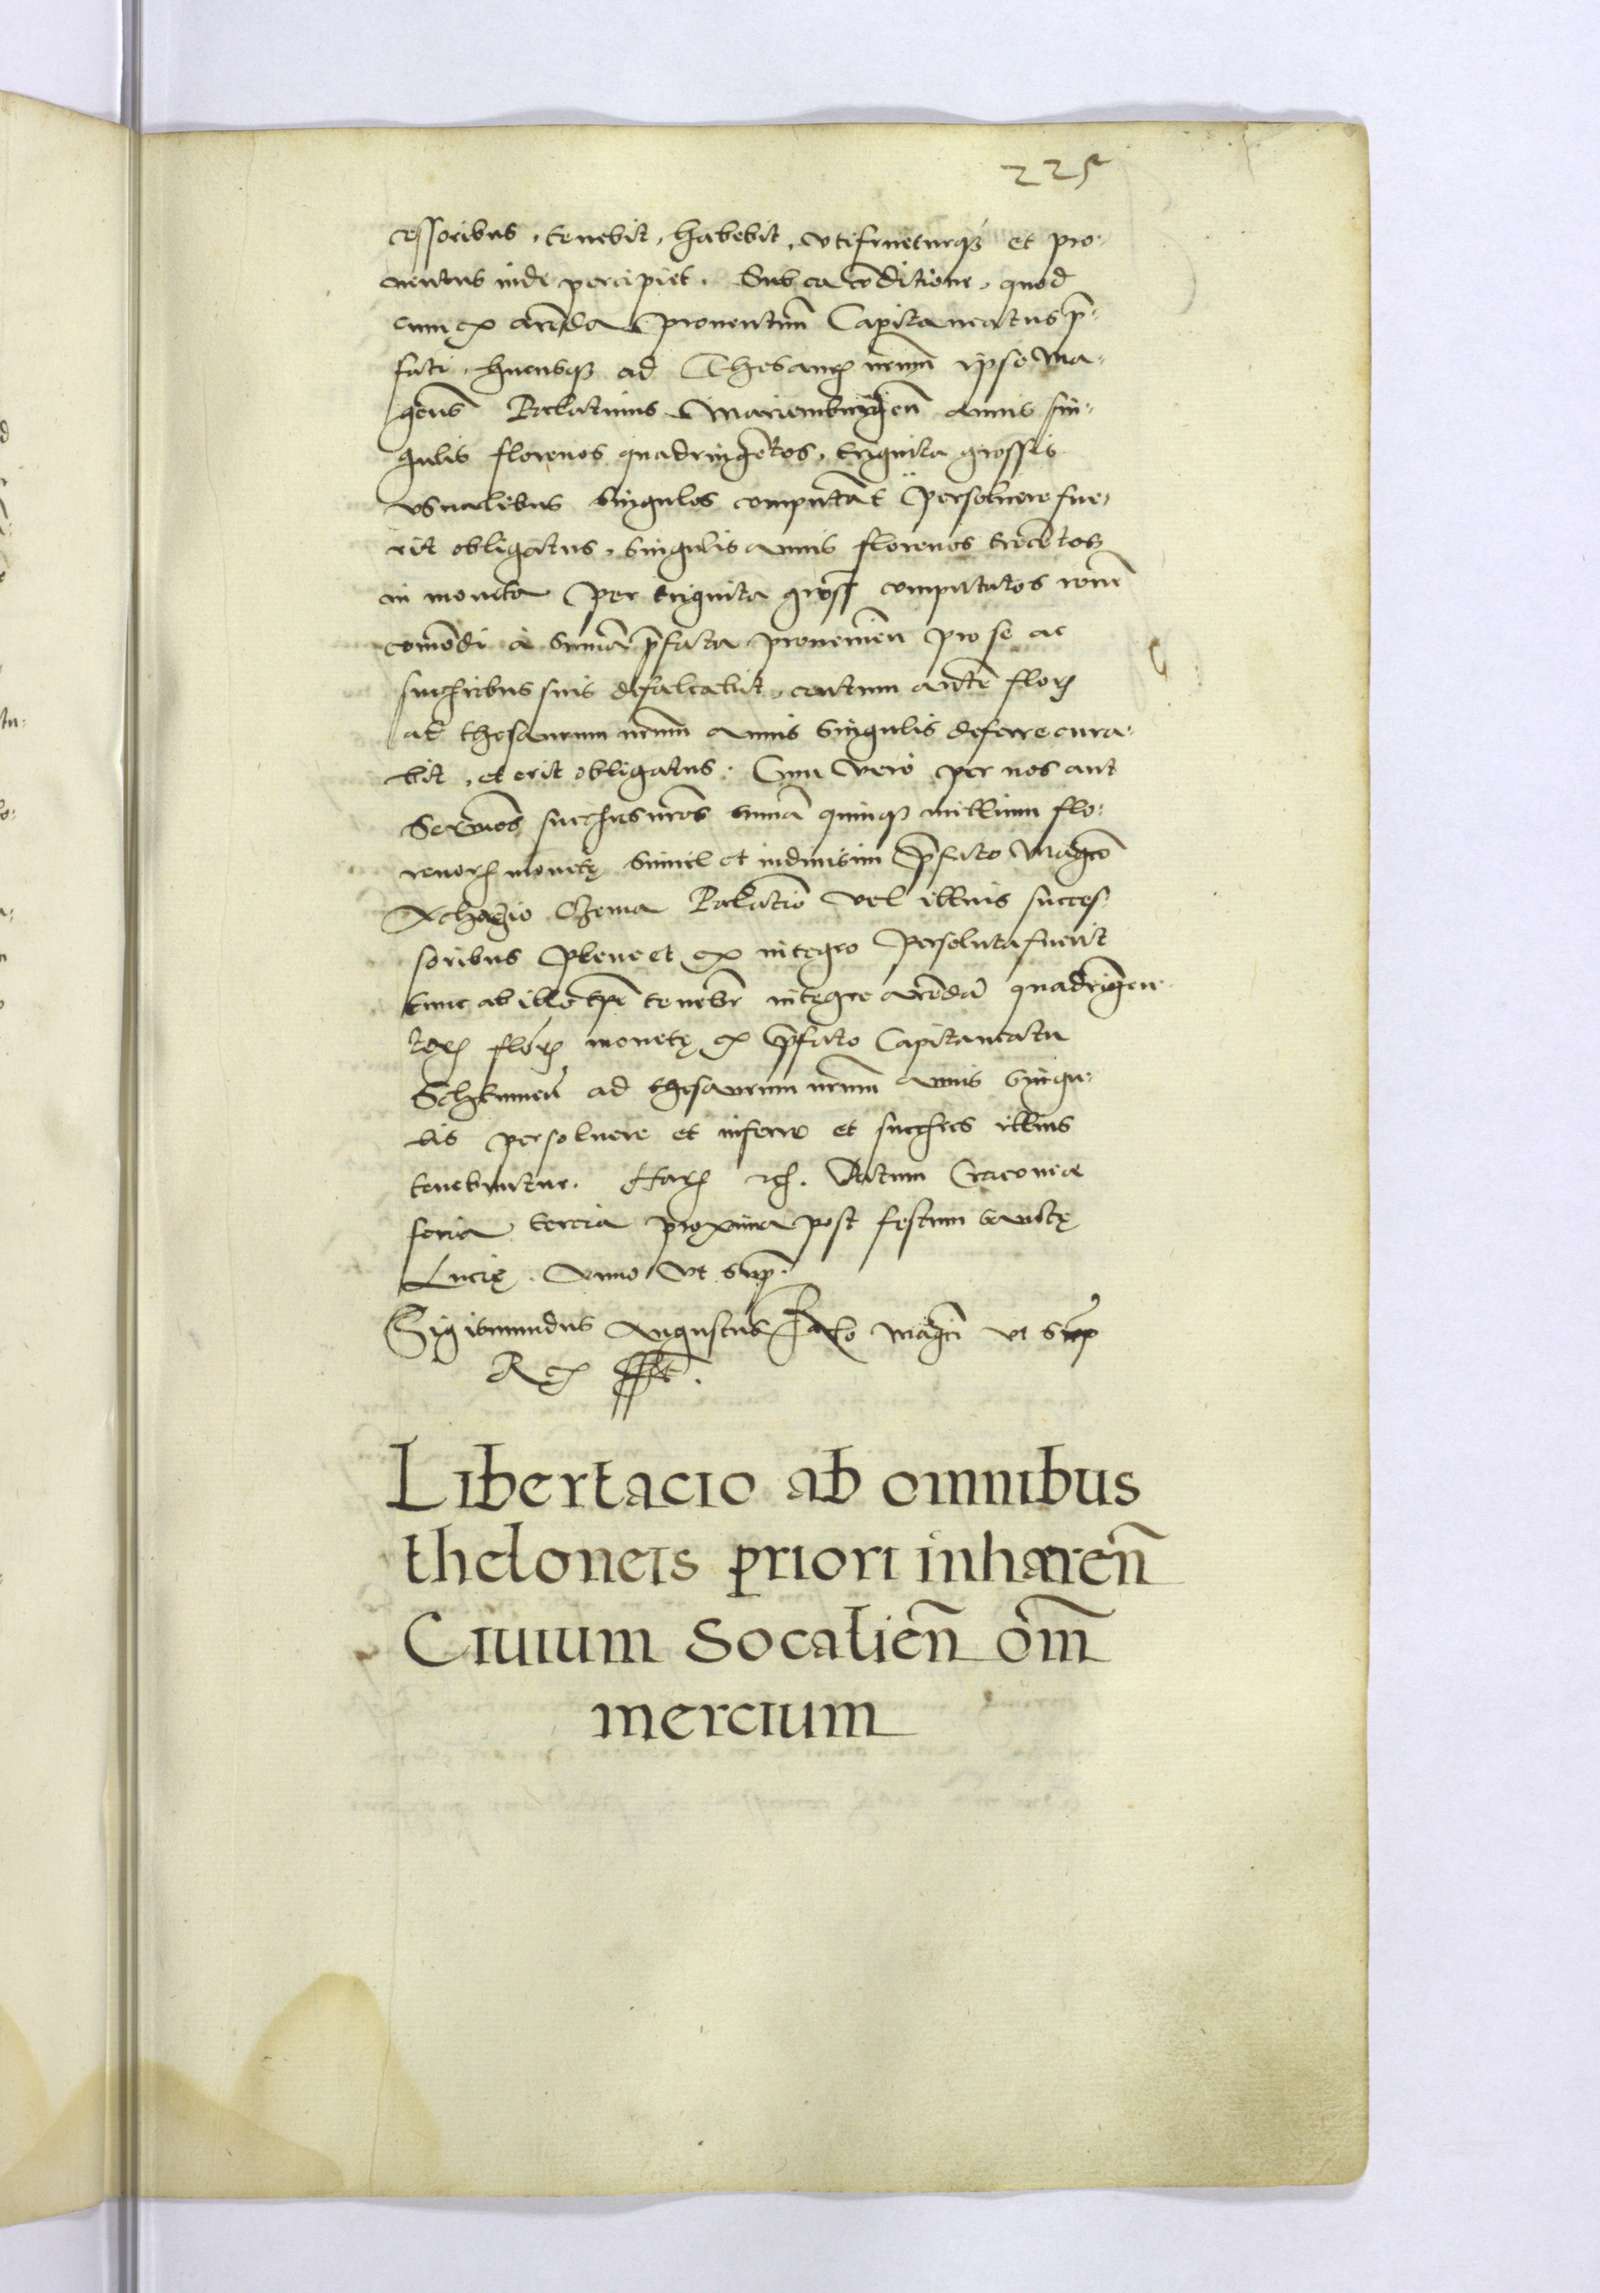 225
cessoribus, tenebit, habebit, vtifrueturq3 et pro-
uentus inde percipiet. Sub ea cōditione, quod
cum ex arēda prouentuum Capitaneatus p̄-
fati, hucusq3 ad Thesaur nrum ipse Ma-
gcus Palatinus Mariemburgen annis sin-
gulis florenos quadringētos, triginta grossis
vsualibus singulos computādo persoluere fue-
rit obligatus, singulis annis florenos trecētos
in moneta per triginta gross computatos rone
comōdi a summa p̄fata prouenien pro se ac
succribus suis defalcabit, centum autē flor
ad thesaurum nrum annis singulis deferre cura-
bit, et erit obligatus. Cum vero per nos aut
Sermos succres nros summa quinq3 millium flo-
renor monetę simul et indiuisim p̄fato Magco
Achacio Czema Palatino vel illius succes
soribus plene et ex integro persoluta fuerit
tunc ab illo tpe tenebr integre arēdā quadringen
tor flor monetę ex p̄fato Capitaneatu
Schthumen ad thesaurum nrum annis singu-
lis persoluere et inferre et succres illius
tenebuntur. Har rh. Datum Cracouiæ
feria tercia proxima post festum sanctę
Lucię. Anno vt sup.
Sigismundus Augustus Relo Magci vt sup
Rex sst.
Libertacio ab omnibus
theloneis priori inhæren̄
Ciuium Socalien̄ om̄
mercium